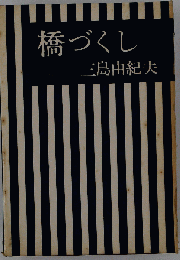 橋づくし
三島由紀夫